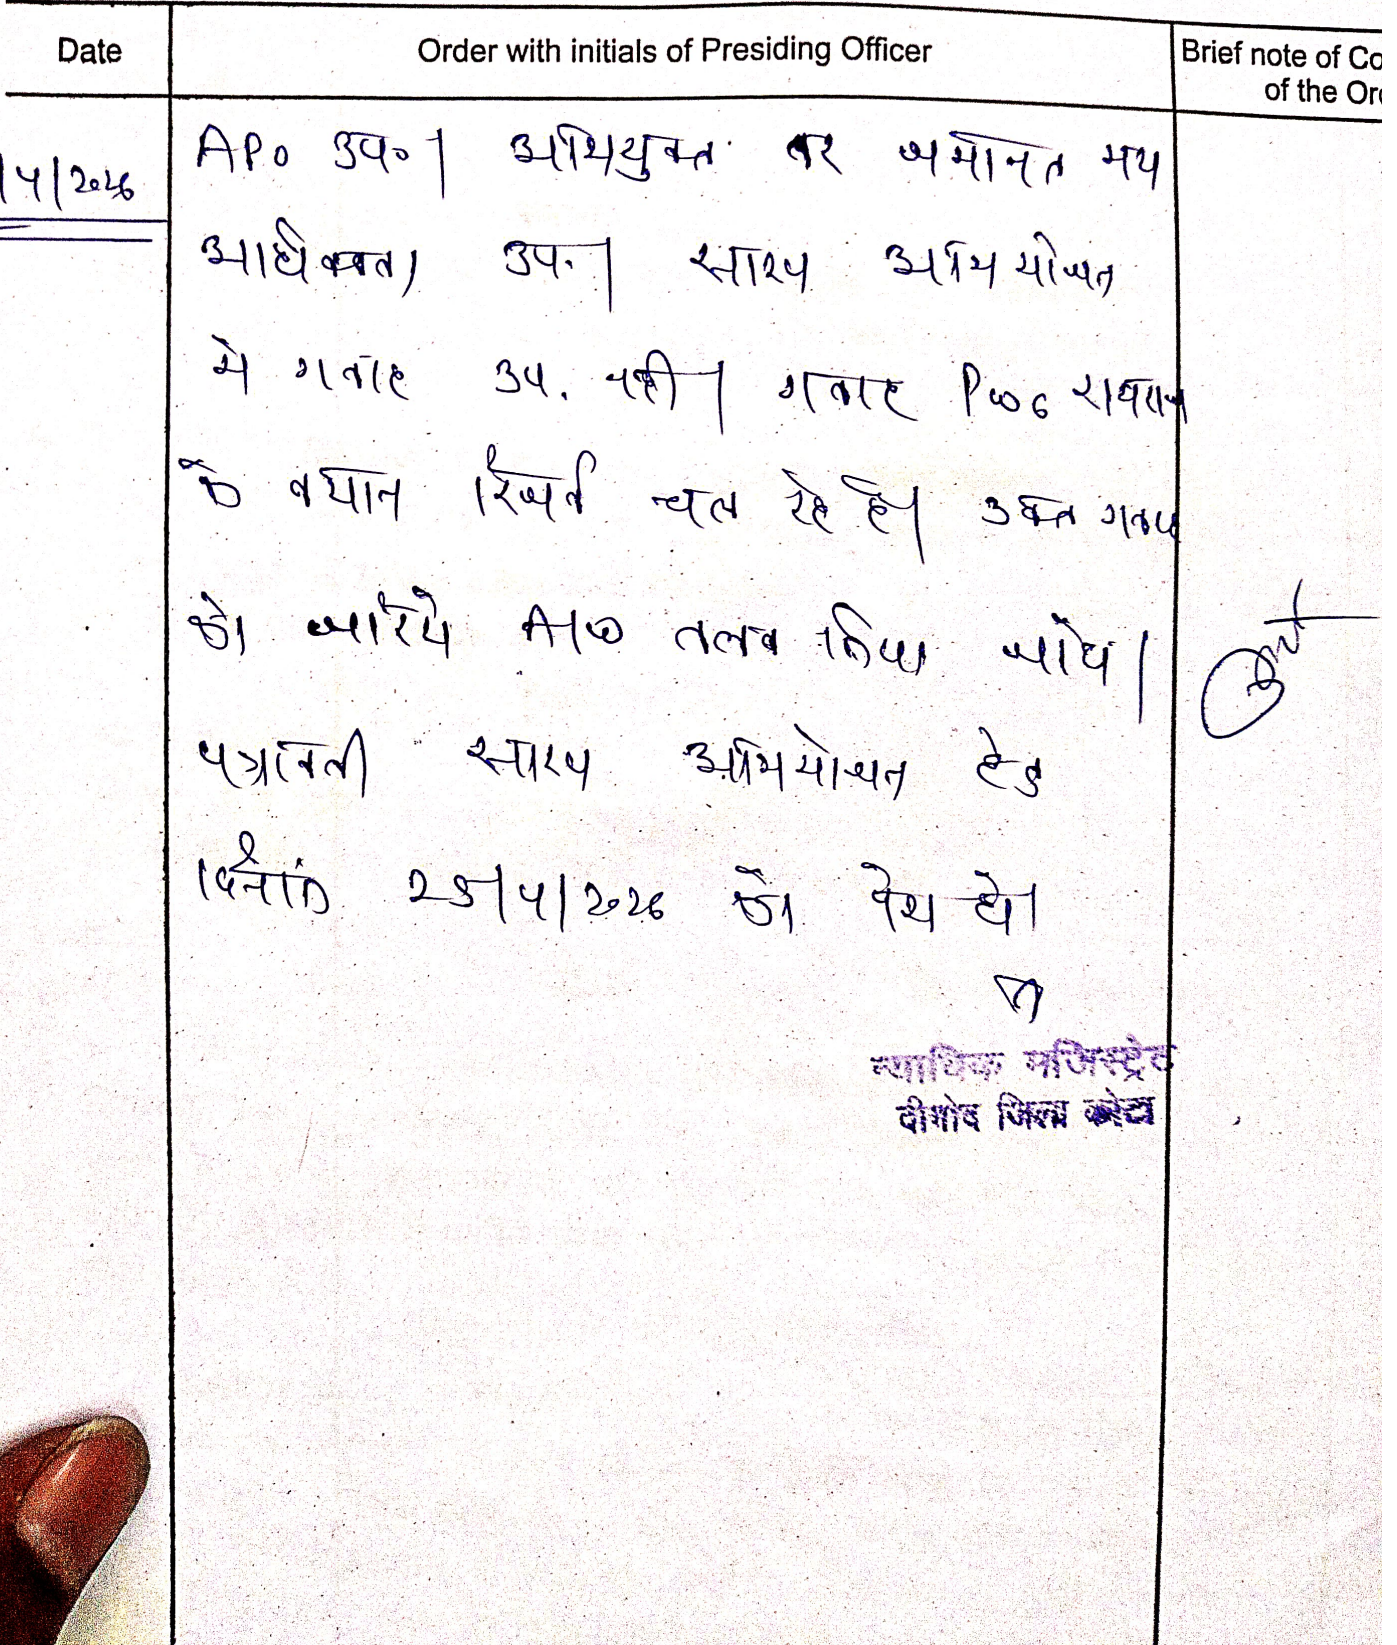 Date
Order with initials of Presiding Officer
Brief note of Co
of the Ord
/4/2026
APO उप०। अभियुक्त बर जमानत मय
अधिवक्ता उप.। साक्ष्य अभियोजन
मे गवाह उप. नही। गवाह PW6
के बयान रिजर्व चल रहे है। उक्त गवाह
को जरिये AW तलब किया जावे।
पत्रावली साक्ष्य अभियोजन हेतु
दिनांक 28/4/2026 को पेश हो।
न्यायिक मजिस्ट्रेट
दीगोद जिला कोटा